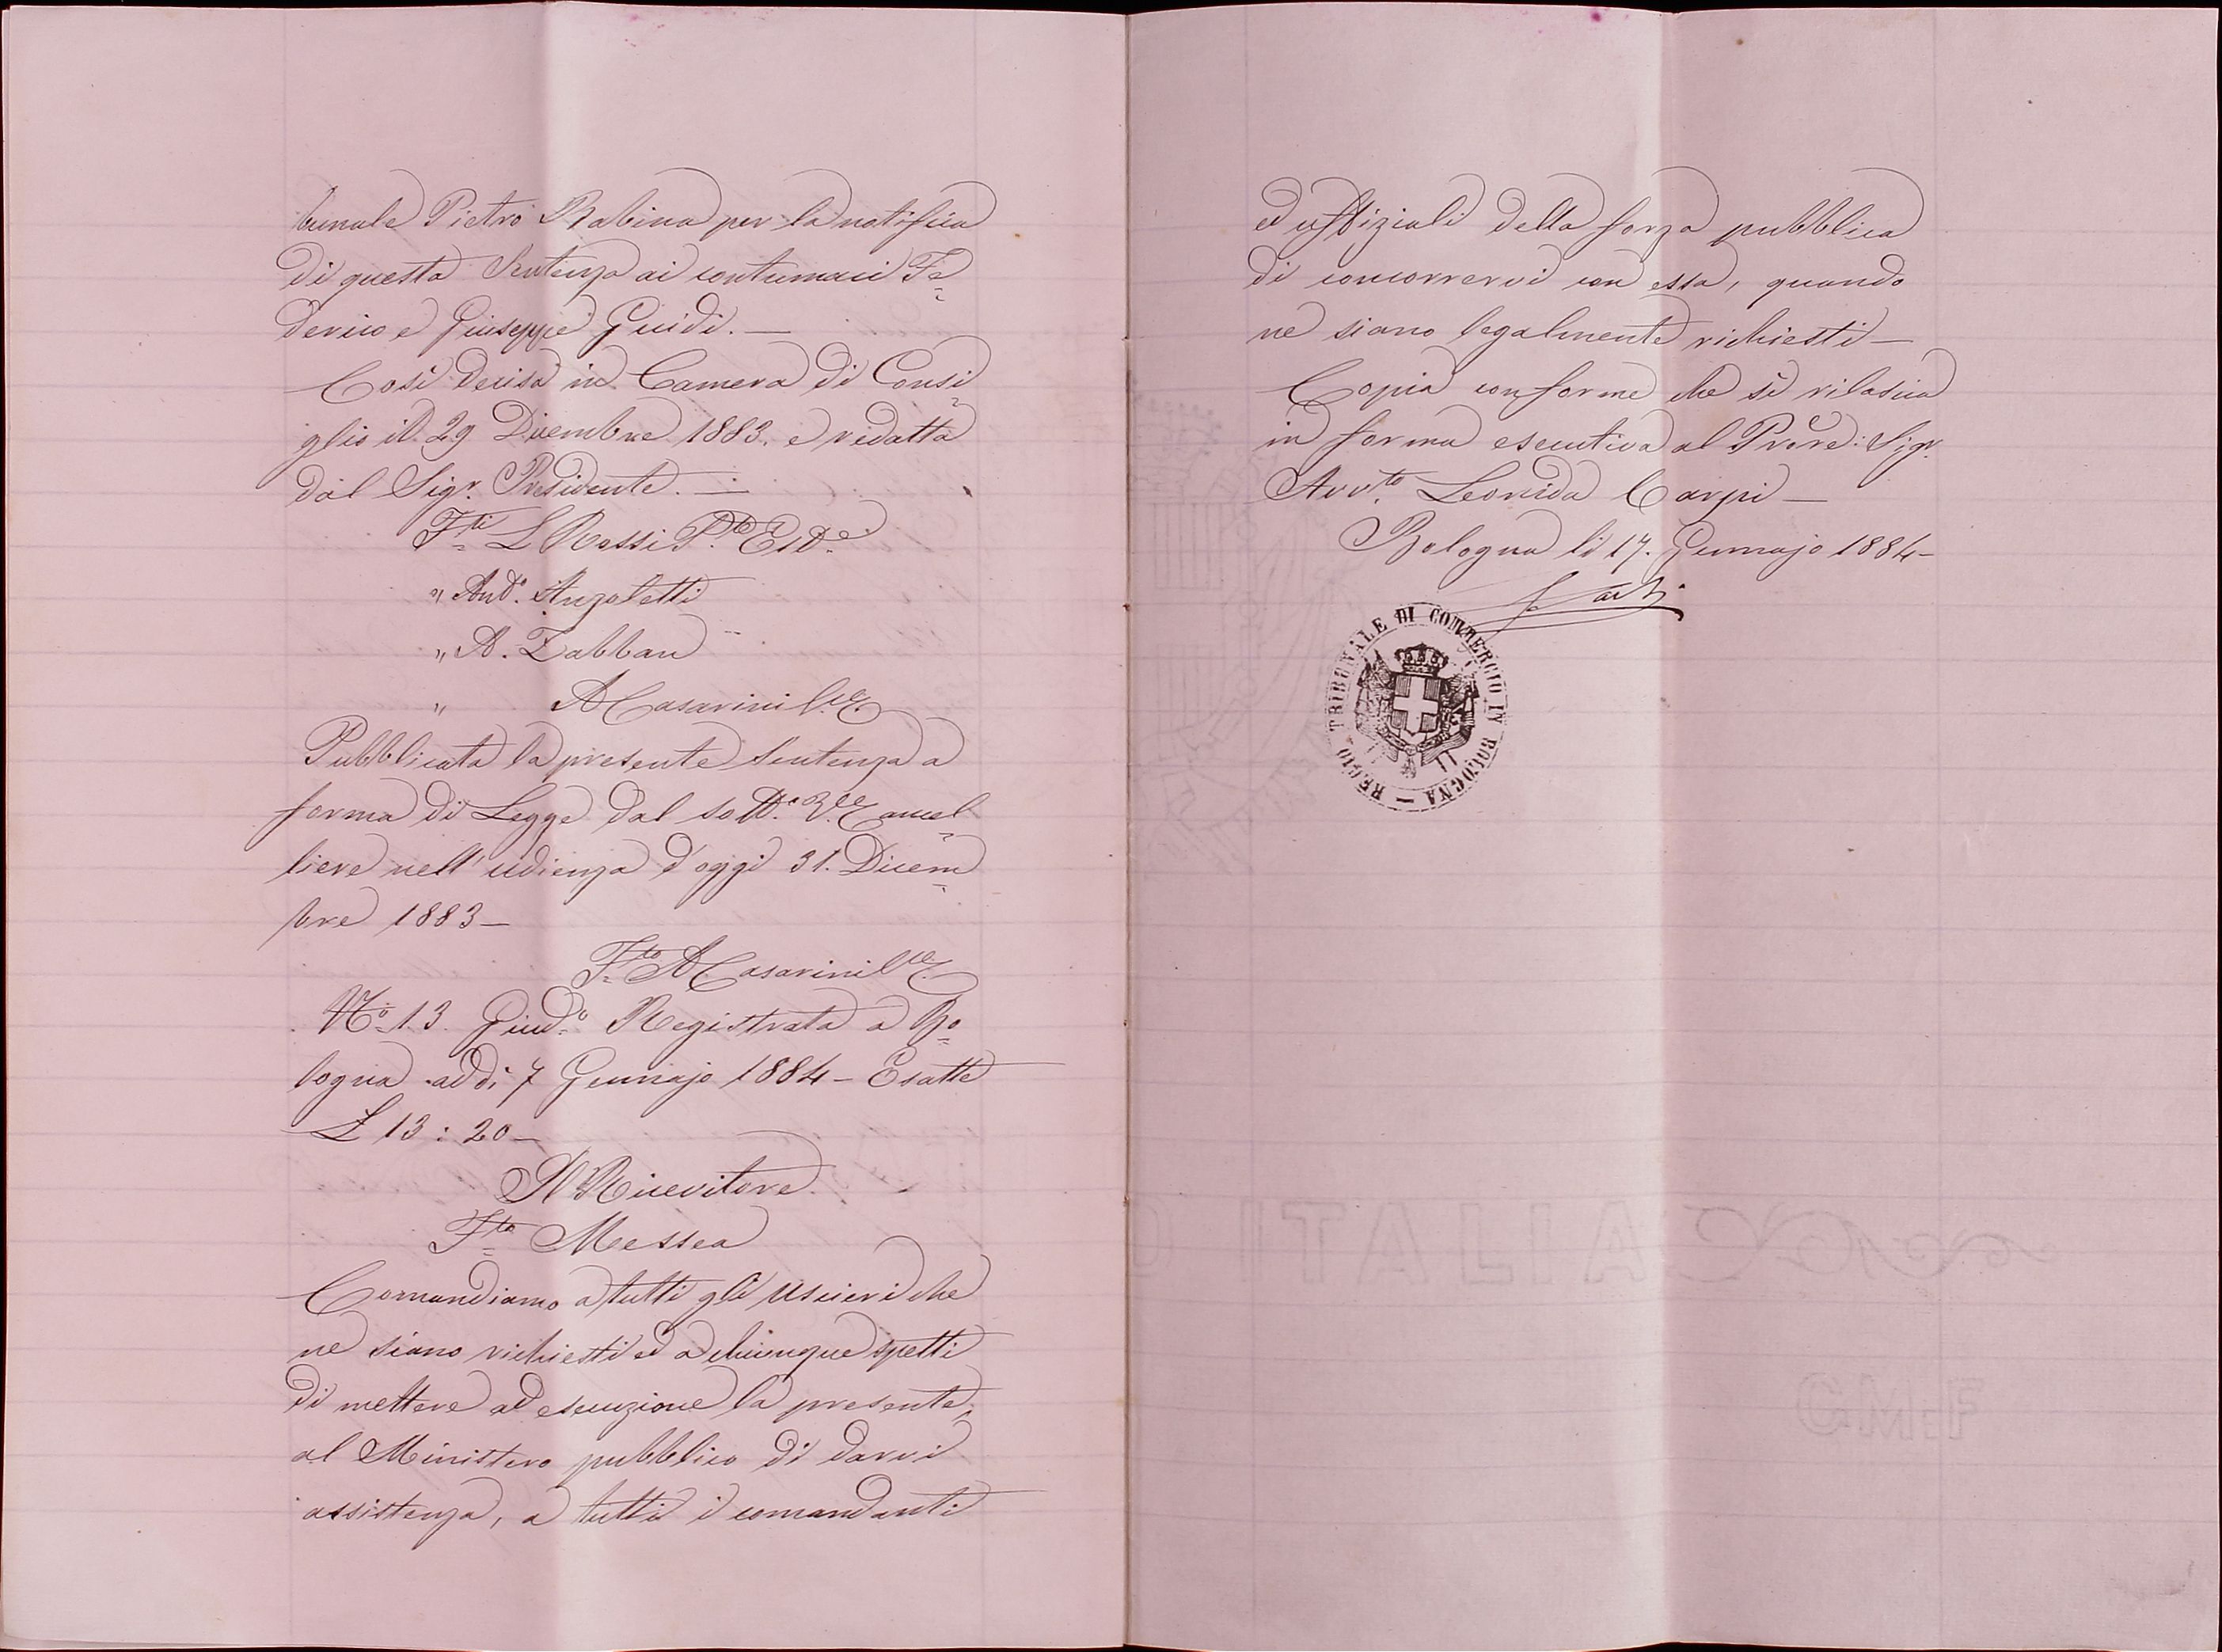 bunale Pietro Rabina per la notifica
di questa Sentenza ai contumaci Fe=
derico e Giuseppe Guidi. —
Così decisa in Camera di Consi=
glio il 29 Dicembre 1883. e redatta
dal Sigr. Presidente. —
Fti L Rossi P.te Est.e
" Ant.o Anzoletti
" A. Zabban
" A Casarini
Pubblicata la presente Sentenza a
forma di Legge dal sott.o V.ce Cancel=
liere nell'udienza d'oggi 31. Dicem=
bre 1883 —
Fto A Casarini
No. 13. Giud.o Registrata a Bo=
logna addi 7 Gennajo 1884 — Esatte
L 13 : 20 —
Il Ricevitore
Fto Messea
Comandiamo a tutti gli uscieri che
ne siano richiesti ed a chiunque spetti
di mettere ad esecuzione la presente,
al Ministero pubblico di darvi
assistenza, a tutti i comandanti
ed uffiziali della forza pubblica
di concorrervi con essa, quando
ne siano legalmente richiesti —
Copia conforme che si rilascia
in forma esecutiva al Proc.re: Sigr.
Avv.to Leonida Carpi —
Bologna li 17. Gennajo 1884 —
REGIO TRIBUNALE DI COMMERCIO IN BOLOGNA —
D ITALIA
C.M.F